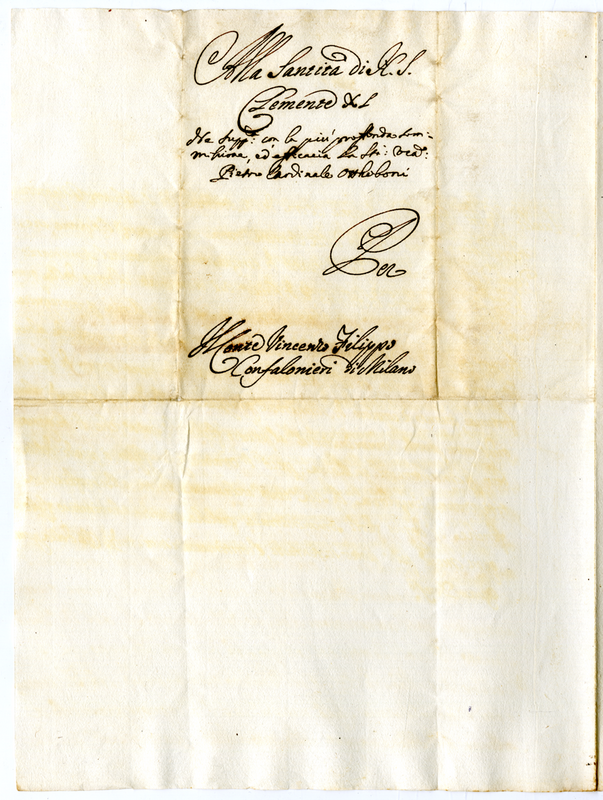 Alla Santità di N. S.
Clemente XI
Ne supp.ca con la più profonda som=
missione, ed efficacia la Stà: Vra:
Pietro Cardinale Otthoboni
Per
Il Conte Vincenzo Filippo
Confalonieri di Milano